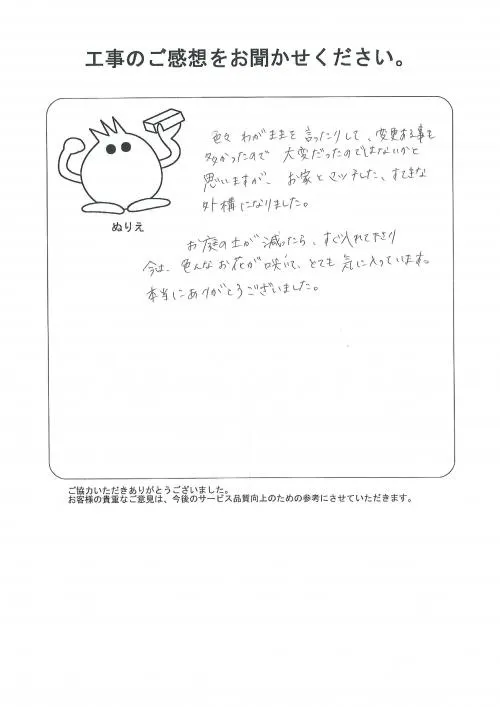 工事のご感想をお聞かせください。
色々 わがままを言ったりして、変更ある事も
多かったので 大変だったのではないかと
思いますが、お家とマッチした、すてきな
外構になりました。
ぬりえ
お庭の土が減ったら、すぐ入れて下さり
今は、色んなお花が咲いて、とても気に入っています。
本当にありがとうございました。
ご協力いただきありがとうございました。
お客様の貴重なご意見は、今後のサービス品質向上のための参考にさせていただきます。